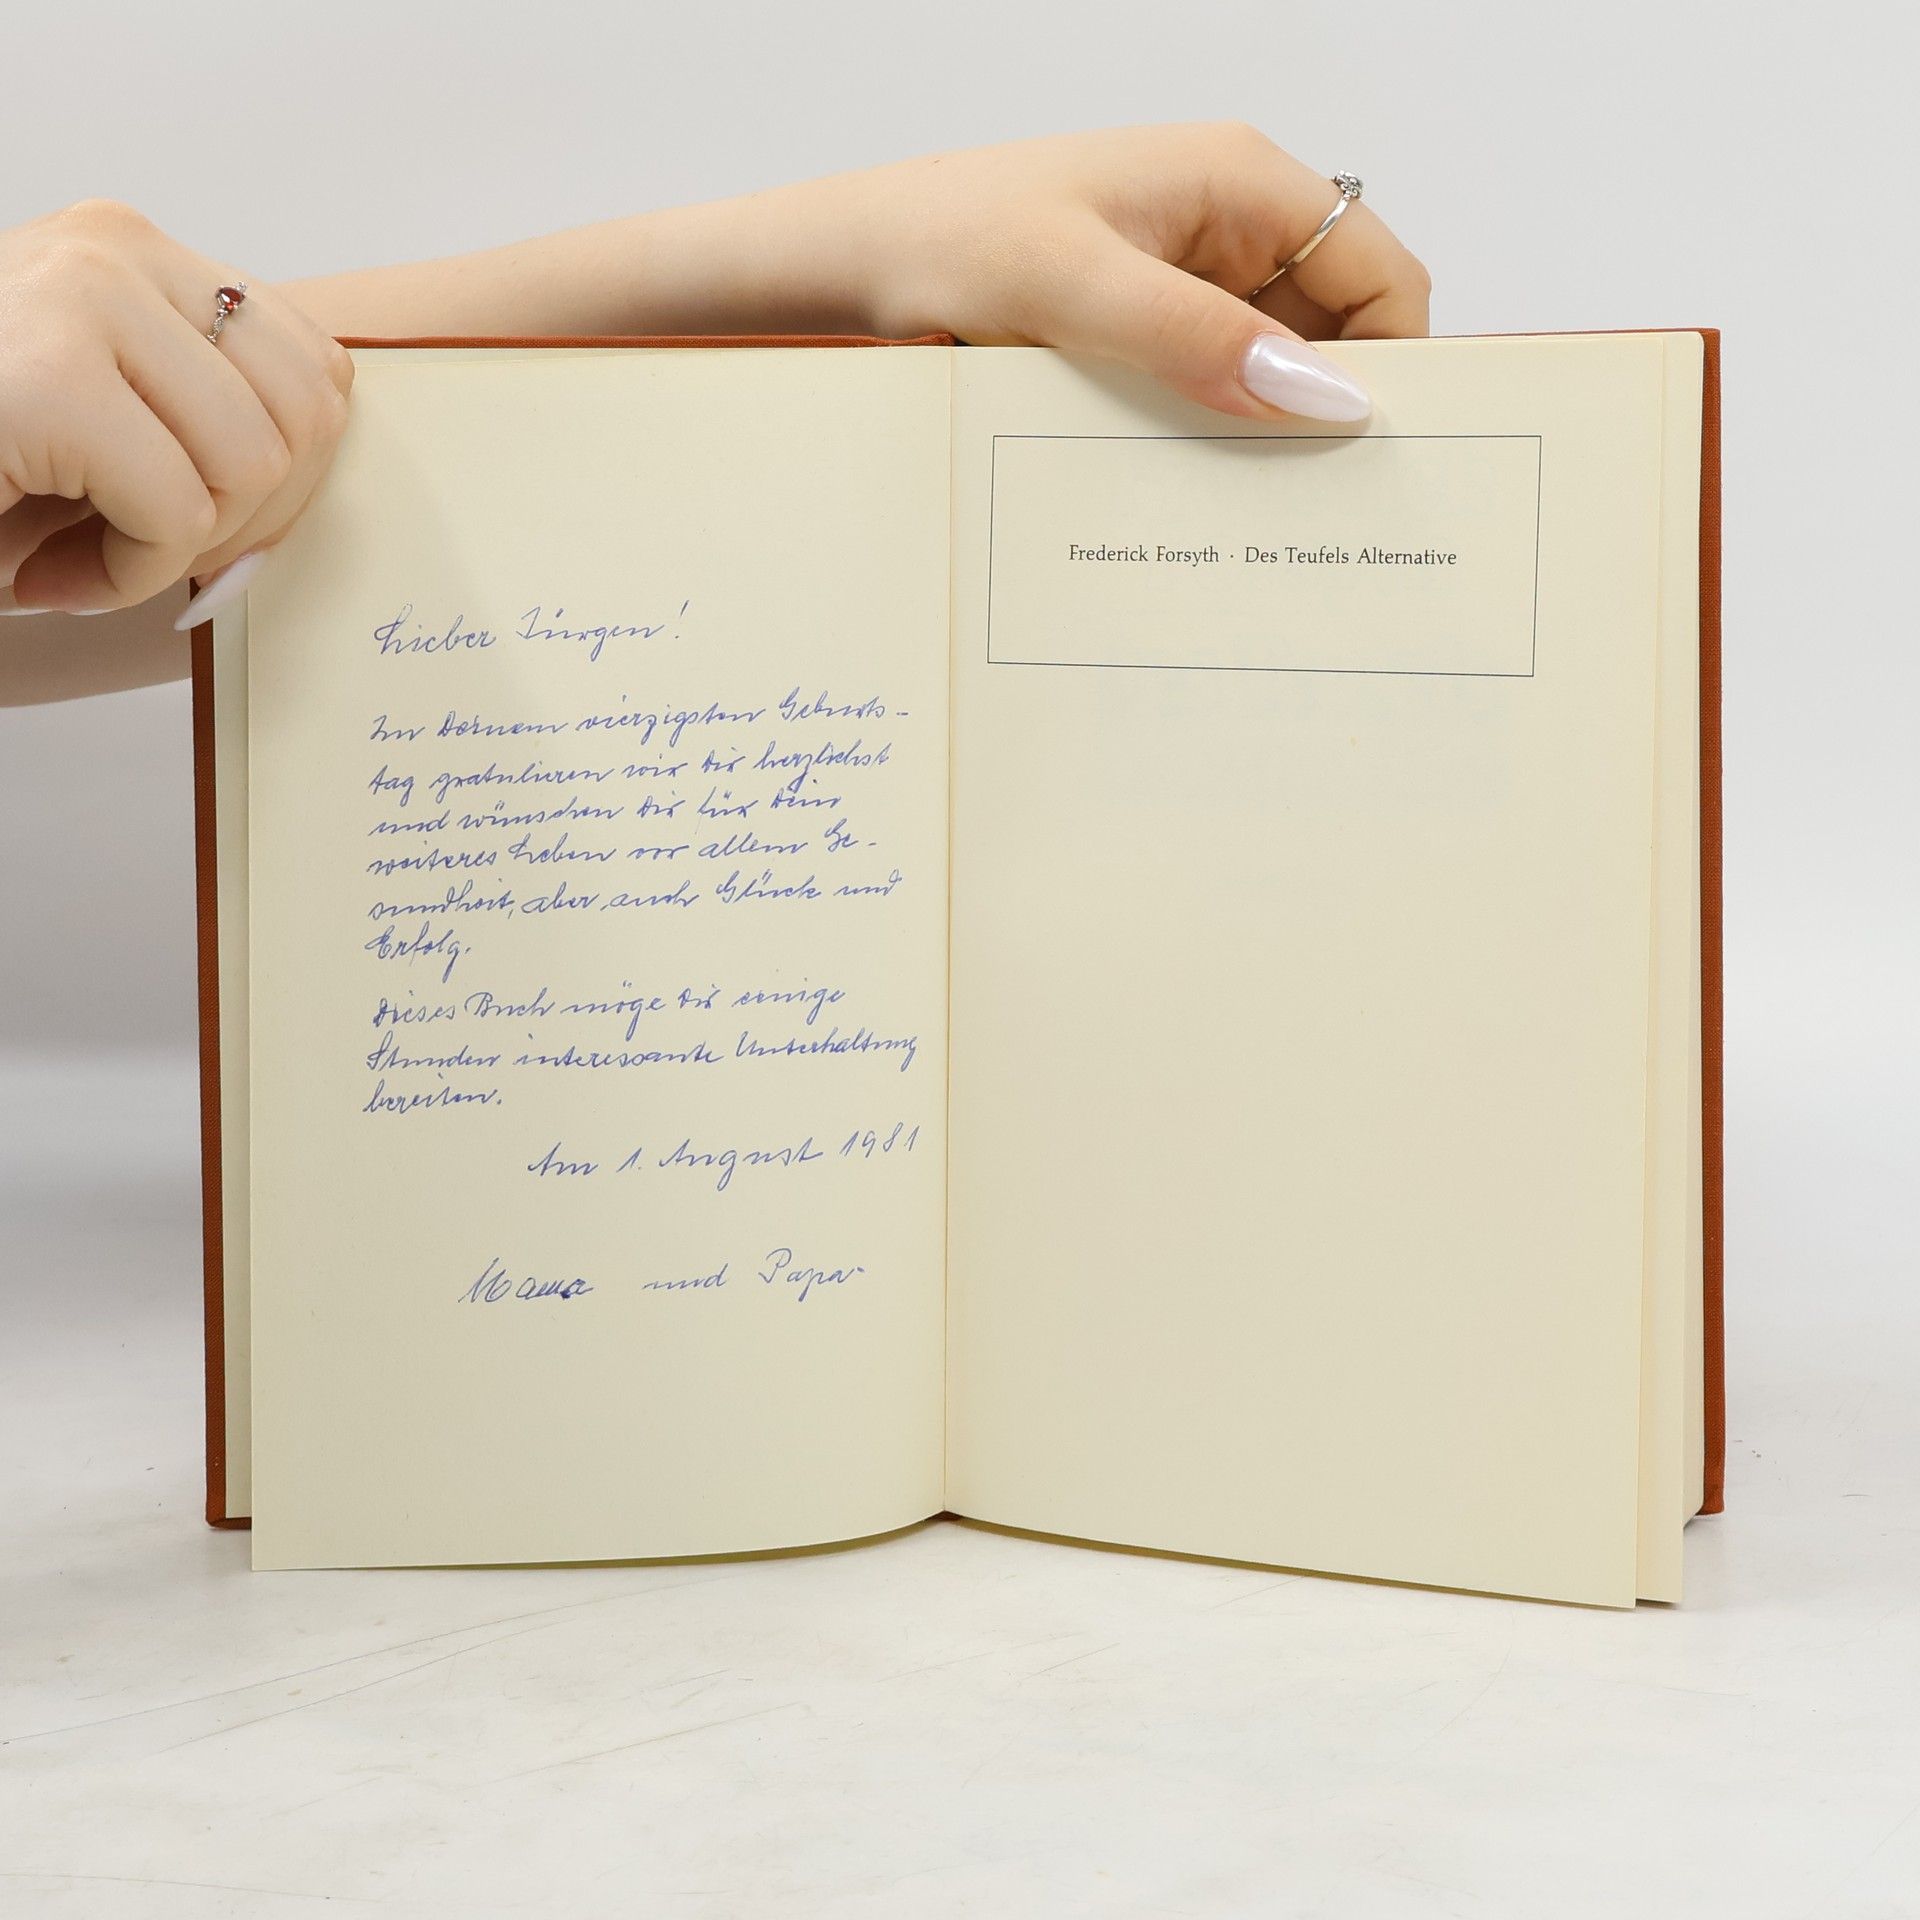 Lieber Jürgen!
Zu Deinem vierzigsten Geburts-
tag gratulieren wir Dir herzlichst
und wünschen Dir für Dein
weiteres Leben vor allem Ge-
sundheit, aber auch Glück und
Erfolg.
Dieses Buch möge Dir einige
Stunden interessante Unterhaltung
bereiten.
Am 1. August 1981
Mama und Papa
Frederick Forsyth · Des Teufels Alternative